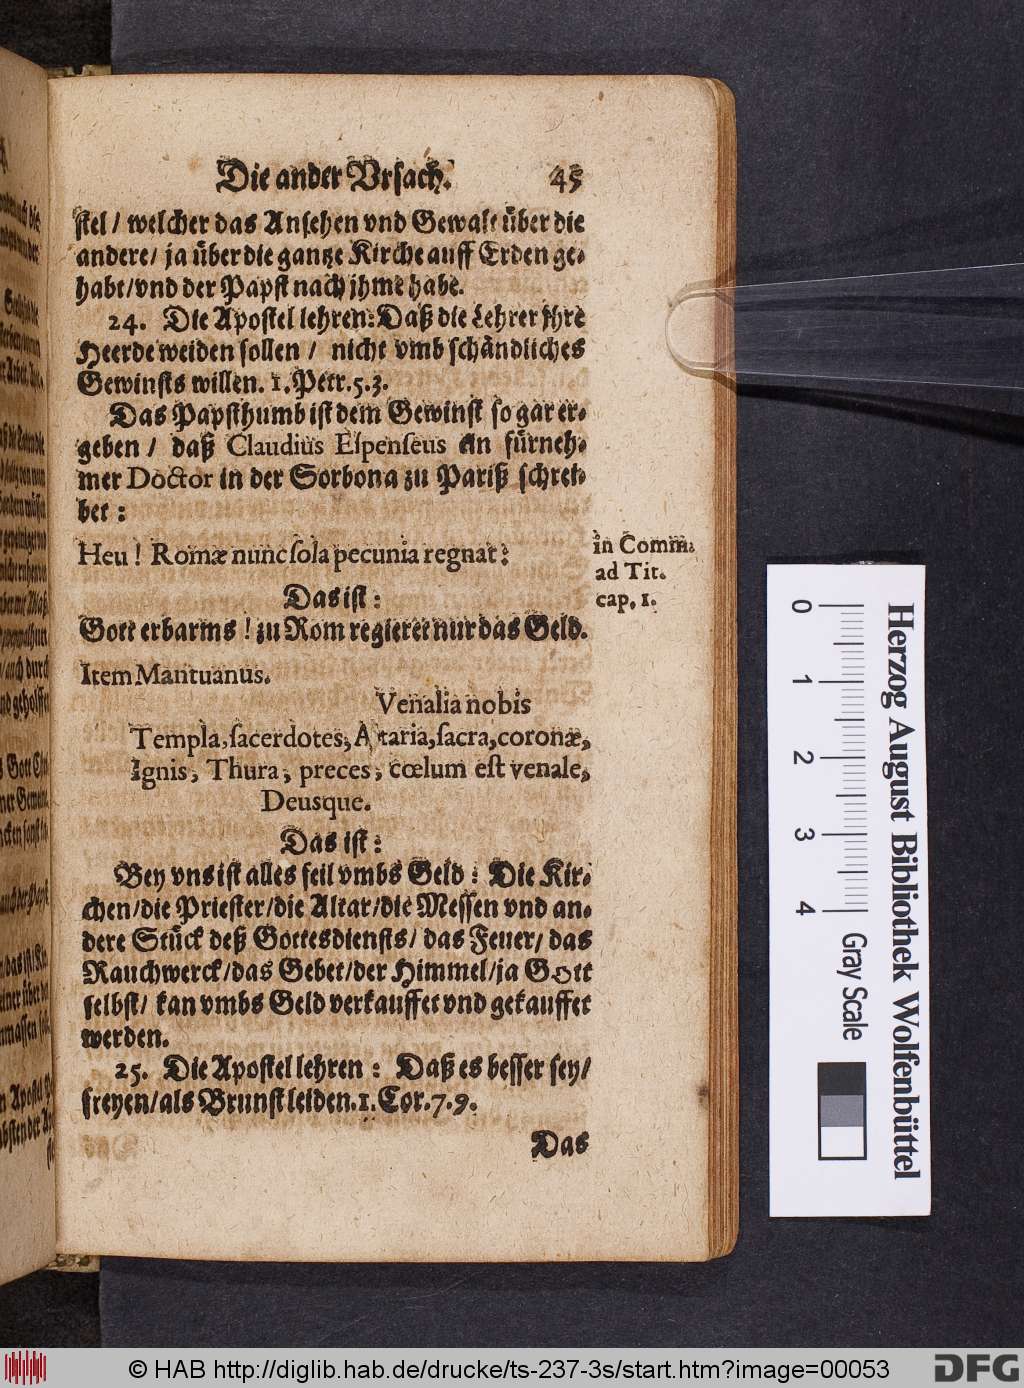 Die ander Vrsach. 45
stel / welcher das Ansehen vnd Gewalt über die
andere / ja über die gantze Kirche auff Erden ge-
habt / vnd der Papst nach jhme habe.
24. Die Apostel lehren: Daß die Lehrer jhre
Heerde weiden sollen / nicht vmb schändliches
Gewinsts willen. 1. Petr. 5. 3.
Das Papsthumb ist dem Gewinst so gar er-
geben / daß Claudius Espenseus ein fürneh-
mer Doctor in der Sorbona zu Pariß schrei-
bet :
Heu ! Romæ nunc sola pecunia regnat :
in Comm.
ad Tit.
cap. 1.
Das ist :
Gott erbarms ! zu Rom regieret nur das Geld.
Item Mantuanus.
Venalia nobis
Templa, sacerdotes, Altaria, sacra, coronæ,
Ignis, Thura, preces, cœlum est venale,
Deusque.
Das ist :
Bey vns ist alles feil vmbs Geld : Die Kir-
chen / die Priester / die Altar / die Messen vnd an-
dere Stück deß Gottesdiensts / das Feuer / das
Rauchwerck / das Gebet / der Himmel / ja GOtt
selbst / kan vmbs Geld verkauffet vnd gekauffet
werden.
25. Die Apostel lehren : Daß es besser sey /
freyen / als Brunst leiden. 1. Cor. 7. 9.
Das
0 1 2 3 4 Gray Scale
Herzog August Bibliothek Wolfenbüttel
© HAB http://diglib.hab.de/drucke/ts-237-3s/start.htm?image=00053 DFG